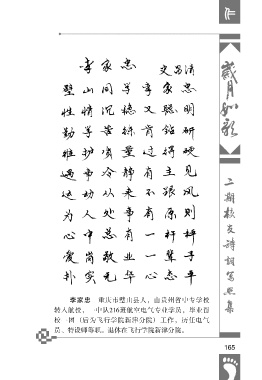 李家忠
史昌清
璧山同学李家忠
性情沉稳又聪明
勤学苦练肯钻研
维护质量过得硬
遇事冷静有主见
运动从来不跟风
为人处事有原则
心中总有一杆秤
爱岗敬业一辈子
朴实无华心态平
岁月如歌
二期校友诗词写照集
李家忠 重庆市璧山县人，由贵州省中专学校
转入航校，一中队216班航空电气专业学员，毕业留
校一团（后为飞行学院新津分院）工作，历任电气
员、特设师等职。退休在飞行学院新津分院。
165